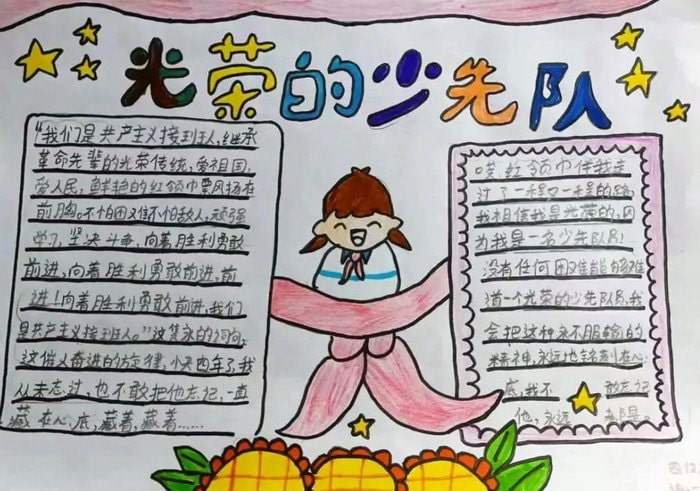 光荣的少先队
"我们是共产主义接班人,继承
革命先辈的光荣传统,爱祖国,
爱人民,鲜艳的红领巾飘扬在
前胸。不怕困难不怕敌人,顽强
学习,坚决斗争,向着胜利勇敢
前进,向着胜利勇敢前进,前
进!向着胜利勇敢前进,我们
是共产主义接班人。"这隽永的词句,
这催人奋进的旋律,快四年了,我
从未忘过,也不敢把他忘记,一直
藏在心底,藏着,藏着……
哎,红领巾伴我走
过了一程又一程的路,
我相信我是光荣的,因
为我是一名少先队员!
没有任何困难能够难
道一个光荣的少先队员,我
会把这种永不服输的
精神,永远地铭刻在心
底,我不敢忘记
他,永远